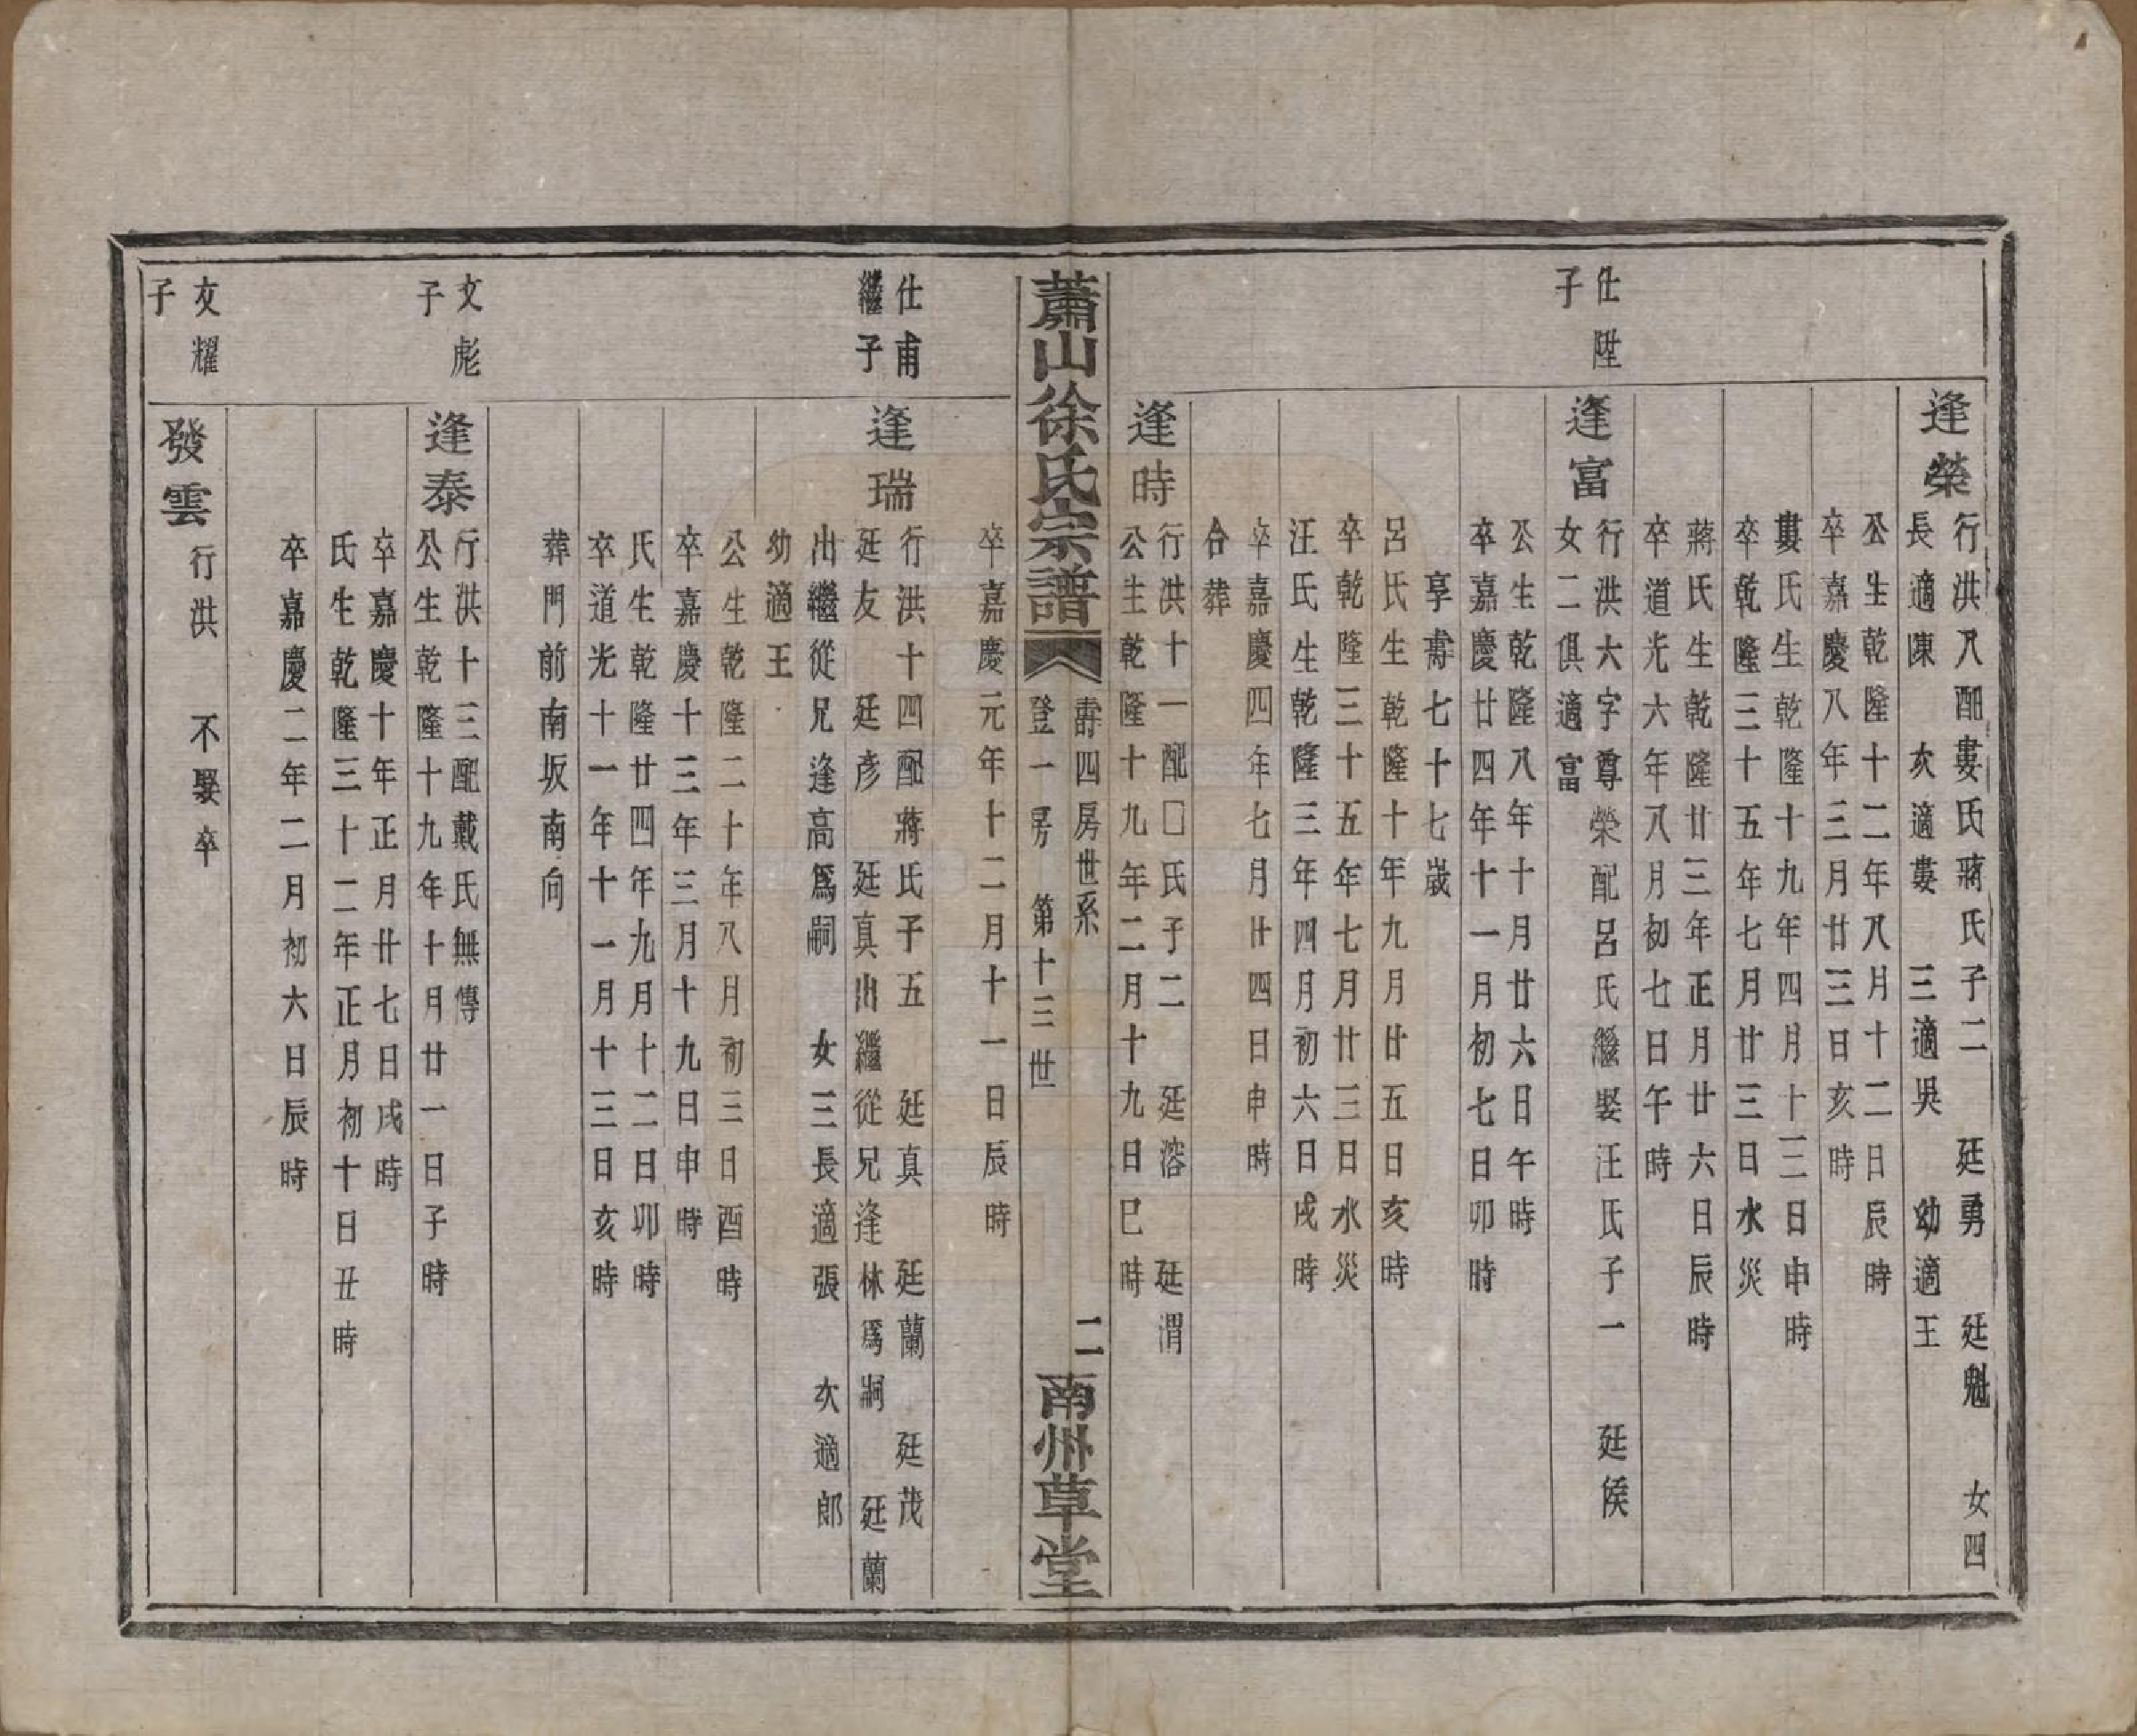 逢榮
行洪八配婁氏蔣氏子二　廷勇　廷魁　女四
長適陳　次適婁　三適吳　幼適王
公生乾隆十二年八月十二日辰時
卒嘉慶八年三月廿三日亥時
婁氏生乾隆十九年四月十三日申時
卒乾隆三十五年七月廿三日水災
蔣氏生乾隆廿三年正月廿六日辰時
卒道光六年八月初七日午時
仕陞
子
逢富
行洪六字尊榮配呂氏繼娶汪氏子一　廷侯
女二俱適富
公生乾隆八年十月廿六日午時
卒嘉慶廿四年十一月初七日卯時
享壽七十七歲
呂氏生乾隆十年九月廿五日亥時
卒乾隆三十五年七月廿三日水災
汪氏生乾隆三年四月初六日戌時
卒嘉慶四年七月廿四日申時
合葬
逢時
行洪十一配□氏子二　廷溶　廷渭
公生乾隆十九年二月十九日巳時
蕭山徐氏宗譜
壽四房世系　二
登一房　第十三世
南州草堂
卒嘉慶元年十二月十一日辰時
仕甫
繼子
逢瑞
行洪十四配蔣氏子五　廷真　廷蘭　廷茂
廷友　廷彥　廷真出繼從兄逢林爲嗣　廷蘭
出繼從兄逢高爲嗣　女三長適張　次適郎
幼適王
公生乾隆二十年八月初三日酉時
卒嘉慶十三年三月十九日申時
氏生乾隆廿四年九月十二日卯時
卒道光十一年十一月十三日亥時
葬門前南坂南向
文彪
子
逢泰
行洪十三配戴氏無傳
公生乾隆十九年十月廿一日子時
卒嘉慶十年正月廿七日戌時
氏生乾隆三十二年正月初十日丑時
卒嘉慶二年二月初六日辰時
友耀
子
發雲
行洪　不娶卒